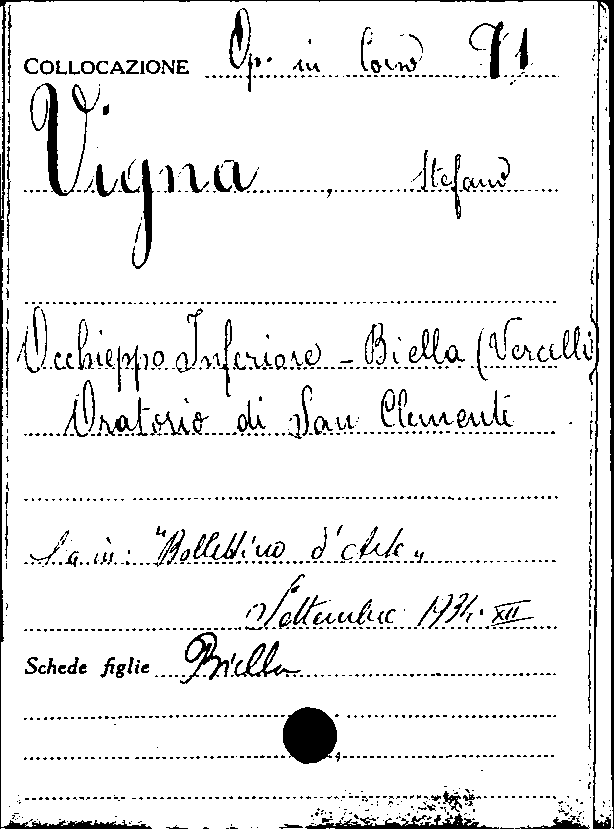 COLLOCAZIONE Op. in Corso 71
Vigna, Stefano
Occhieppo Inferiore - Biella (Vercelli)
Oratorio di San Clemente
in: "Bollettino d'Arte"
Settembre 1934-XII
Schede figlie Biella